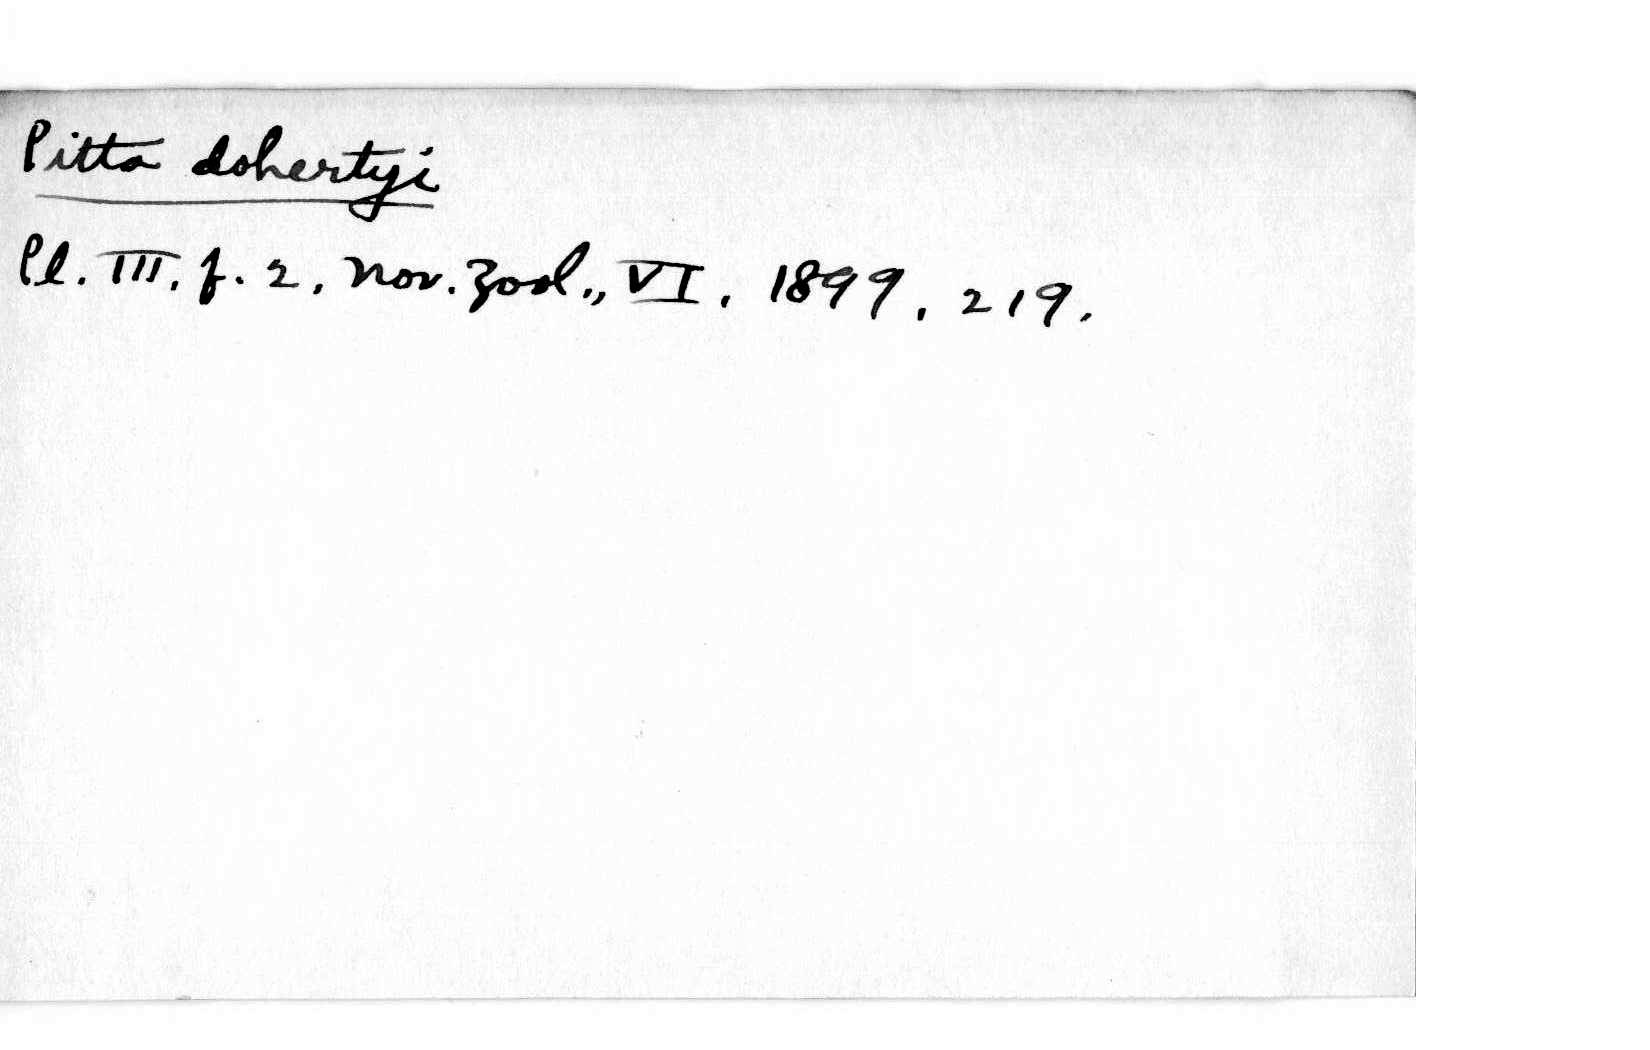 Pitta dohertyi
Pl. III. f. 2, Nov. Zool., VI, 1899, 219.